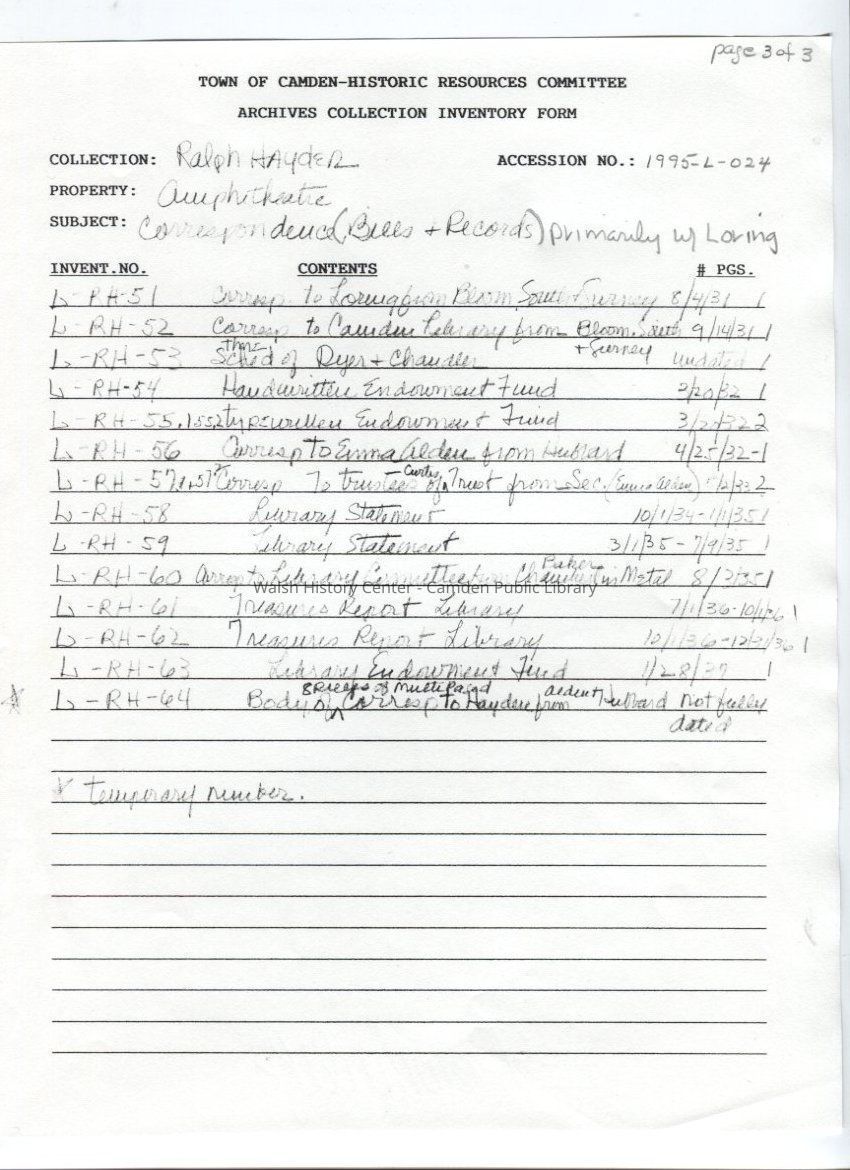 page 3 of 3
TOWN OF CAMDEN-HISTORIC RESOURCES COMMITTEE
ARCHIVES COLLECTION INVENTORY FORM
COLLECTION: Ralph HAydeR ACCESSION NO.: 1995-L-024
PROPERTY: Amphitheatre
SUBJECT: Correspondence (Bills + Records) primarily w/ Loring
INVENT.NO. CONTENTS # PGS.
L-RH-51 Corresp. to Loring from Bloom, South + Gurney 8/4/31 1
L-RH-52 Corresp to Camden Library from Bloom, South + Gurney 9/14/31 1
L-RH-53 Sched of Dyer + Chandler undated 1
L-RH-54 Handwritten Endowment Fund 3/20/32 1
L-RH-55, typewritten Endowment Fund 2
L-RH-56 Corresp to Emma Alden from Hubbard 4/25/32 - 1
L-RH-57, Corresp To trustees of Curtis Trust from Sec. (Emma Alden) 2
L-RH-58 Library Statement 10/1/34-1/1/35 1
L-RH-59 Library Statement 3/1/35 - 7/9/35 1
L-RH-60 to Library Committee Metal 1
Walsh History Center - Camden Public Library
L-RH-61 Treasures Report Library 7/1/36-10/1/36 1
L-RH-62 Treasures Report Library 10/1/36-12/31/36 1
L-RH-63 Library Endowment Fund 1/28/37 1
* L-RH-64 Body of 8 pieces of multi paged Corresp to Hayden from Alden + Hubbard not fully
dated
* temporary number.